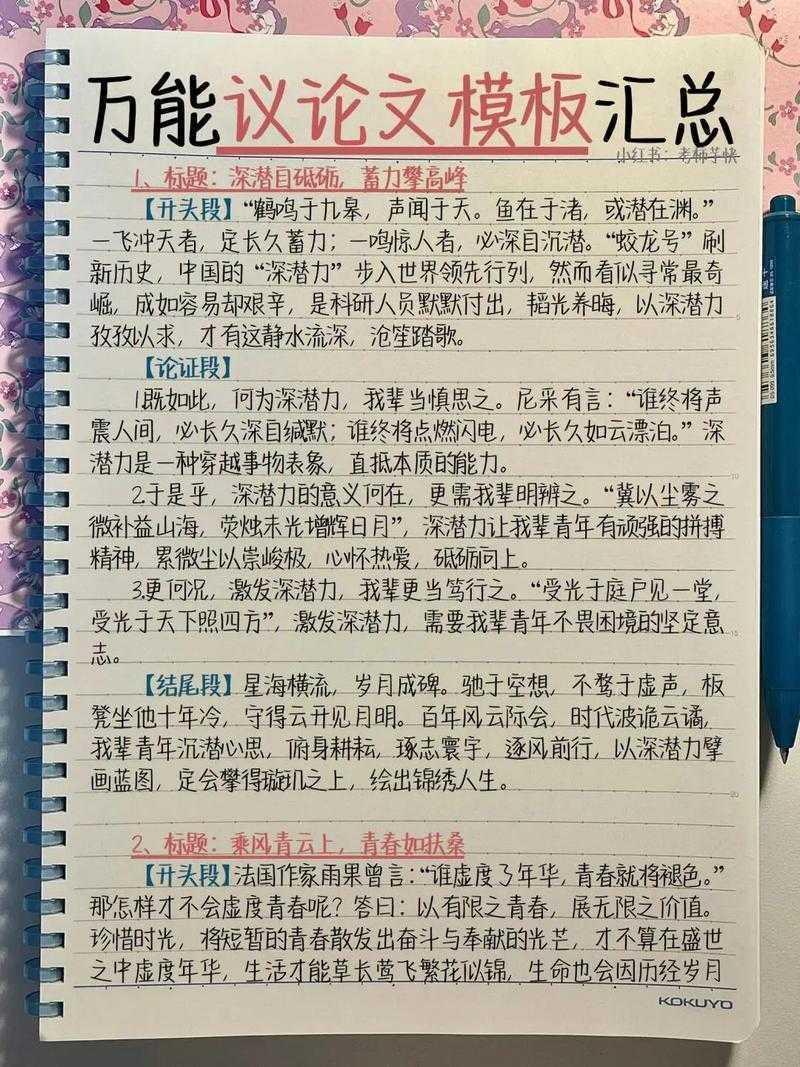 万能议论文模板汇总
小红书：老师芋快
1、标题：深潜自砥砺，蓄力攀高峰
【开头段】“鹤鸣于九皋，声闻于天。鱼在于渚，或潜在渊。”
一飞冲天者，定长久蓄力；一鸣惊人者，必深自沉潜。“蛟龙号”刷
新历史，中国的“深潜力”步入世界领先行列，然而看似寻常最奇
崛，成如容易却艰辛，是科研人员默默付出，韬光养晦，以深潜力
孜孜以求，才有这静水流深，沧笙踏歌。
【论证段】
1.既如此，何为深潜力，我辈当慎思之。尼采有言：“谁终将声
震人间，必长久深自缄默；谁终将点燃闪电，必长久如云漂泊。”深
潜力是一种穿越事物表象，直抵本质的能力。
2.于是乎，深潜力的意义何在，更需我辈明辨之。“冀以尘雾之
微补益山海，荧烛末光增辉日月”，深潜力让我辈青年有顽强的拼搏
精神，累微尘以崇峻极，心怀热爱，砥砺向上。
3.更何况，激发深潜力，我辈更当笃行之。“受光于庭户见一堂，
受光于天下照四方”，激发深潜力，需要我辈青年不畏困境的坚定意
志。
【结尾段】星海横流，岁月成碑。驰于空想，不骛于虚声，板
凳坐他十年冷，守得云开见月明。百年风云际会，时代波诡云谲，
我辈青年沉潜心思，俯身耕耘，琢志寰宇，逐风前行，以深潜力擘
画蓝图，定会攀得璇玑之上，绘出锦绣人生。
2、标题：乘风青云上，青春如扶桑
【开头段】法国作家雨果曾言：“谁虚度了年华，青春就将褪色。”
那怎样才不会虚度青春呢？答曰：以有限之青春，展无限之价值。
珍惜时光，将短暂的青春散发出奋斗与奉献的光芒，才不算在盛世
之中虚度年华，生活才能草长莺飞繁花似锦，生命也会因历经岁月
KOKUYO